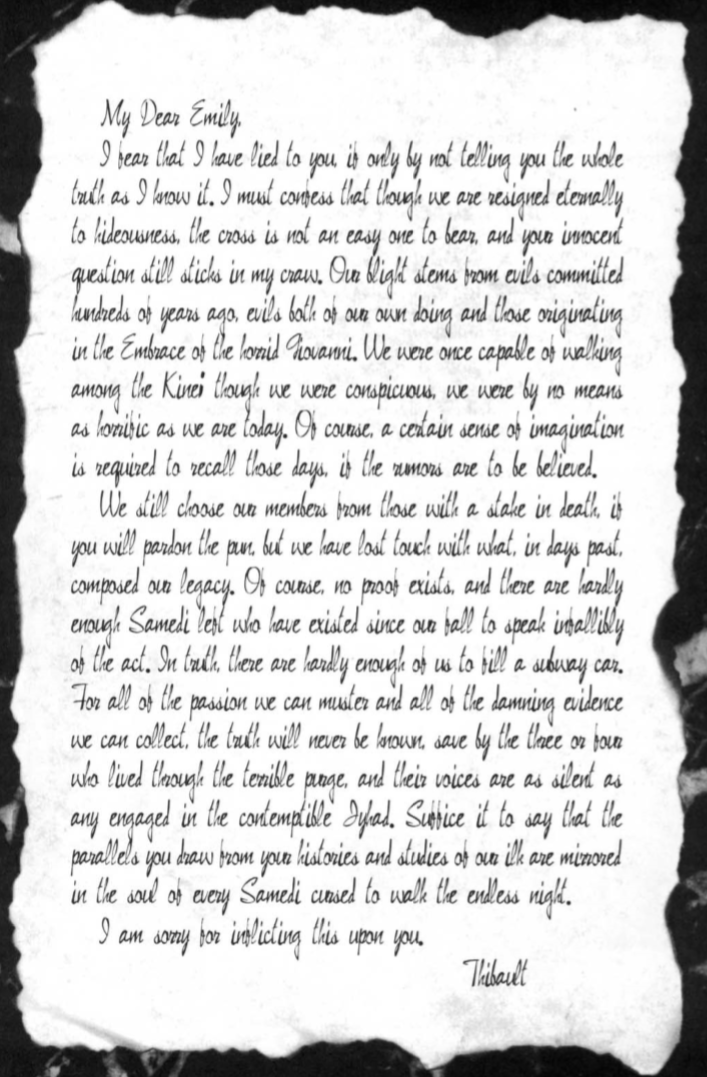 My Dear Emily,
I fear that I have lied to you, if only by not telling you the whole
truth as I know it. I must confess that though we are resigned eternally
to hideousness, the cross is not an easy one to bear, and your innocent
question still sticks in my craw. Our blight stems from evils committed
hundreds of years ago, evils both of our own doing and those originating
in the Embrace of the horrid Giovanni. We were once capable of walking
among the Kine; though we were conspicuous, we were by no means
as horrific as we are today. Of course, a certain sense of imagination
is required to recall those days, if the rumors are to be believed.
We still choose our members from those with a stake in death, if
you will pardon the pun, but we have lost touch with what, in days past,
composed our legacy. Of course, no proof exists, and there are hardly
enough Samedi left who have existed since our fall to speak infallibly
of the act. In truth, there are hardly enough of us to fill a subway car.
For all of the passion we can muster and all of the damning evidence
we can collect, the truth will never be known, save by the three or four
who lived through the terrible purge, and their voices are as silent as
any engaged in the contemptible Jyhad. Suffice it to say that the
parallels you draw from your histories and studies of our ilk are mirrored
in the soul of every Samedi cursed to walk the endless night.
I am sorry for inflicting this upon you.
Thibault